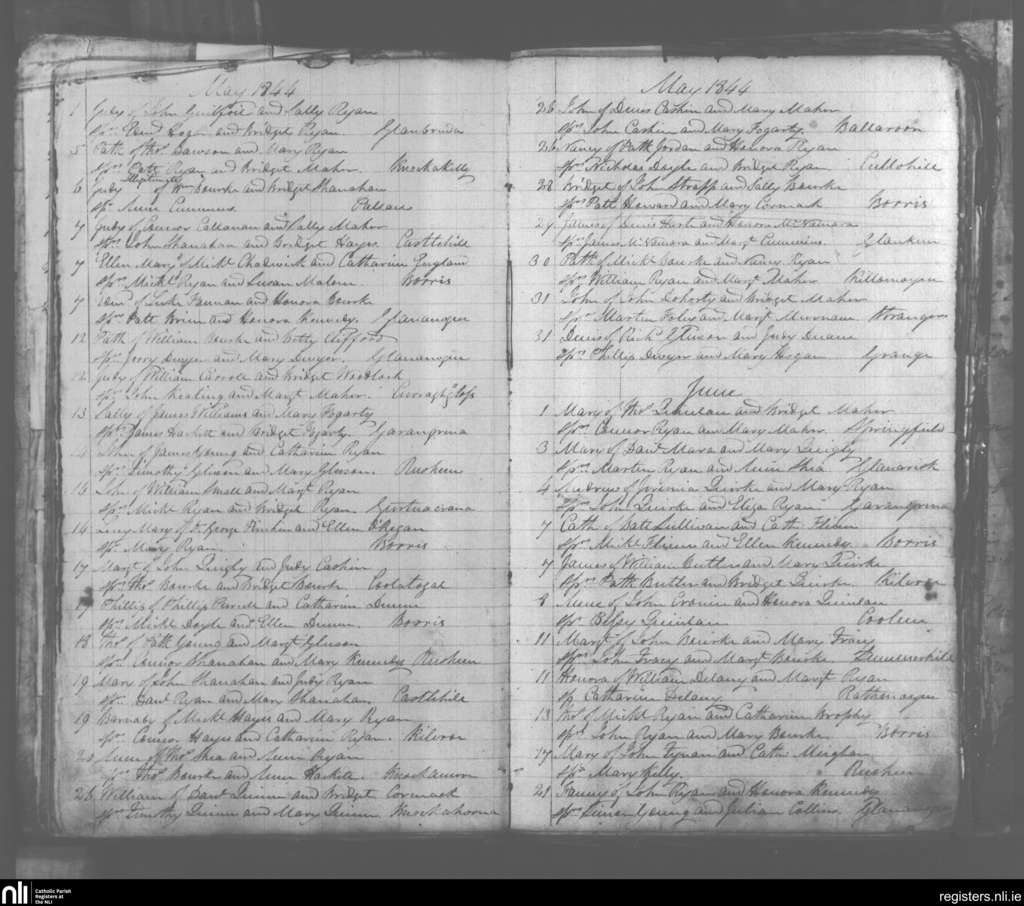 May 1844
1 Judy of John Guilfoil and Sally Ryan
Sprs Bend Hogan and Bridget Ryan.
5 Path of Thos Lawson and Mary Ryan
Sprs Path Ryan and Bridget Maher. Knockakelly
6 Judy illegitimately of Wm Bourke and Bridget Shanahan
Spr Anne Cummins Pallas
7 Judy of Connor Callanan and Sally Maher
Sprs John Shanahan and Bridget Hayes. Castlehill
7 Ellen Mary of Michl Chadwick and Catharine
Sprs Michl Ryan and Susan Malone. Borris
7 Wm of Luke Fannan and Honora Bourke
Sprs Patt Brien and Honora Kennedy. Glananogue
12 Path of William Bourke and Betty Clifford
Sprs Jerry Dwyer and Mary Dwyer. Glananogue
12 Judy of William Carroll and Bridget Woodlock
Sprs John Keating and Margt Maher.
13 Sally of James Williams and Mary Fogarty
Sprs James Hackett and Bridget Fogarty. Garangrina
14 John of James Young and Catharine Ryan
Sprs Timothy Gleeson and Mary Gleeson. Rusheen
13 John of William Small and Margt Ryan
Sprs Michl Ryan and Bridget Ryan.
14 Lucy Mary of George and Ellen O'Regan
Spr Mary Ryan Borris
17 Margt of John Quigly and Judy Cashin
Sprs Thos Bourke and Bridget Bourke Coolatogal
17 Phillis of Phillip Purcell and Catharine Dunne
Sprs Michl Doyle and Ellen Dunne. Borris
18 Thos of Path Young and Margt Gleeson
Sprs Connor Shanahan and Mary Kennedy Rusheen
19 Mary of John Shanahan and Judy Ryan
Sprs Danl Ryan and Mary Shanahan. Castlehill
19 Barnaby of Michl Hayes and Mary Ryan
Sprs Connor Hayes and Catharine Ryan. Kilvor
20 Anne of Thos Shea and Anne Ryan
Sprs Thos Bourke and Anne Hackett. Knockanora
26 William of Danl Quinn and Bridget Cormack
Sprs Timothy Quinn and Mary Quinn. Knockahoorna
May 1844
26 John of Denis Cashin and Mary Maher
Sprs John Cashin and Mary Fogarty. Ballaroon
26 Nancy of Path Jordan and Honora Ryan
Sprs Nicholas Doyle and Bridget Ryan Cullohill
28 Bridget of John Strapp and Sally Bourke
Sprs Path Howard and Mary Cormack Borris
29 James of Denis Hart and Honora McNamara
Sprs James McNamara and Margt Cummins.
30 Path of Michl Bourke and Nancy Ryan
Sprs William Ryan and Margt Maher Killamoyne
31 John of John Doherty and Bridget Maher
Sprs Martin Foley and Margt Strangers
31 Denis of Richd Gleeson and Judy Duane
Sprs Phillip Dwyer and Mary Hogan Grange
June
1 Mary of Thos Quinlan and Bridget Maher
Sprs Connor Ryan and Mary Maher. Springfield
3 Mary of Danl Mara and Mary Quigly
Sprs Martin Ryan and Anne Shea
4 Andrew of Jeremia Quirke and Mary Ryan
Sprs John Quirke and Eliza Ryan Garangrina
7 Cath of Batt Sullivan and Cath Flinn
Sprs Michl Flinn and Ellen Kennedy. Borris
7 James of William Butler and Mary Quirke
Sprs Path Butler and Bridget Quirke. Kilvor
8 Anne of John Cronin and Honora Quinlan
Spr Betsy Quinlan Cooleen
11 Margt of John Bourke and Mary Tracy
Sprs John Tracy and Margt Bourke.
11 Honora of William Delany and Margt Ryan
Spr Catharine Delany Rathmoyne
13 Thos of Michl Ryan and Catharine Brophy
Sprs John Ryan and Mary Bourke. Borris
17 Mary of John Tynan and Cath Meighan
Spr Mary Kelly. Rusheen
21 Fanny of John Ryan and Honora Kennedy
Sprs Simon Young and Julian Collins.
nli
Catholic Parish
Registers at
the NLI
registers.nli.ie